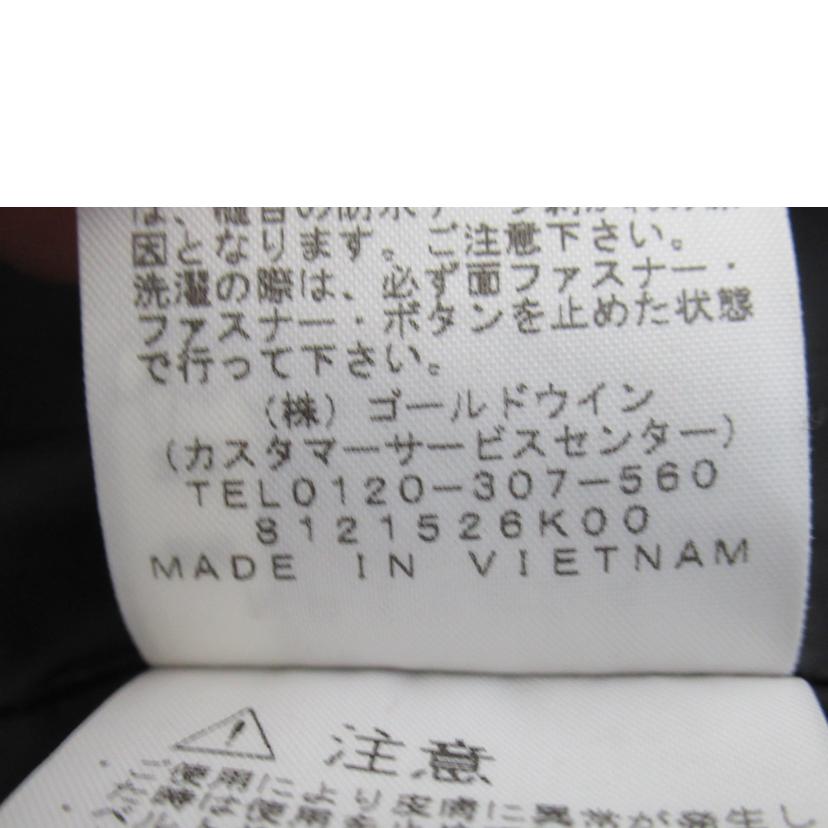 因となります。ご注意下さい。
洗濯の際は、必ず面ファスナー・
ファスナー・ボタンを止めた状態
で行って下さい。
(株) ゴールドウイン
(カスタマーサービスセンター)
TEL0120-307-560
8121526K00
MADE IN VIETNAM
注意
・ご使用により皮膚に異常が発生し
た時は使用を